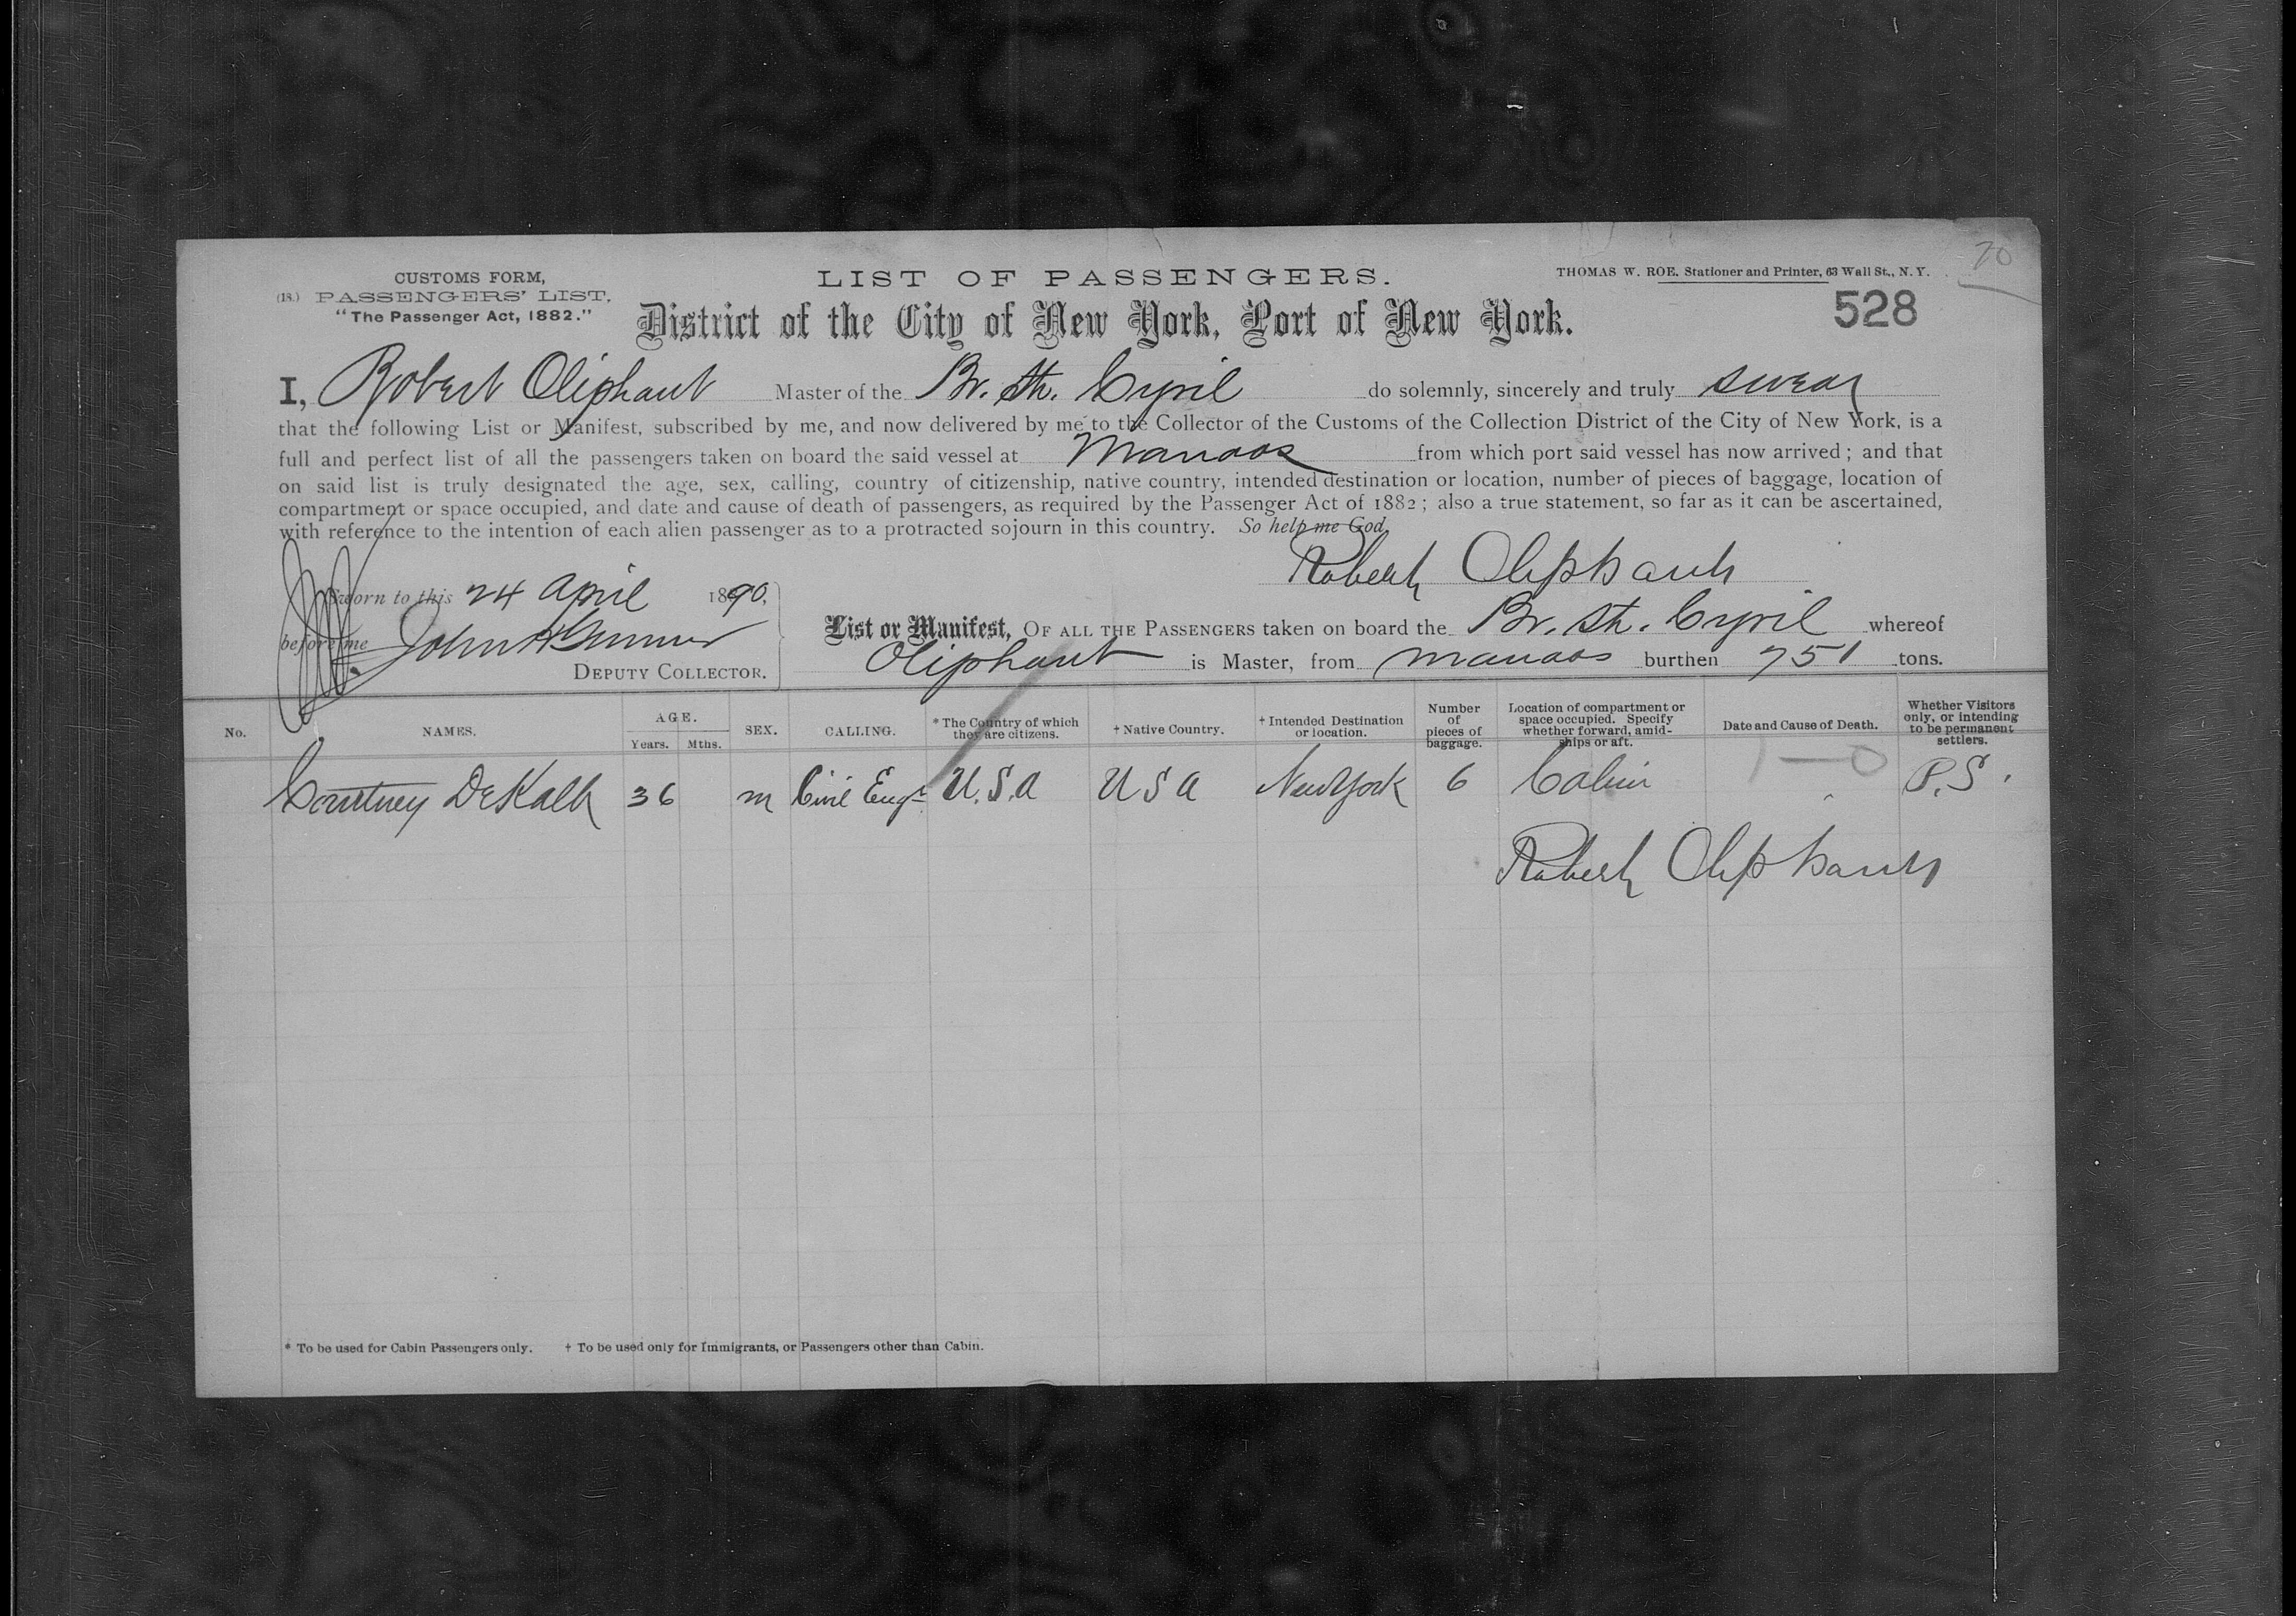 CUSTOMS FORM,
(18.) PASSENGERS' LIST,
"The Passenger Act, 1882."
LIST OF PASSENGERS.
THOMAS W. ROE. Stationer and Printer, 63 Wall St., N.Y.
70
528
District of the City of New York, Port of New York.
I, Robert Oliphant Master of the Br. Str. Cyril do solemnly, sincerely and truly swear
that the following List or Manifest, subscribed by me, and now delivered by me to the Collector of the Customs of the Collection District of the City of New York, is a
full and perfect list of all the passengers taken on board the said vessel at Manaos from which port said vessel has now arrived; and that
on said list is truly designated the age, sex, calling, country of citizenship, native country, intended destination or location, number of pieces of baggage, location of
compartment or space occupied, and date and cause of death of passengers, as required by the Passenger Act of 1882; also a true statement, so far as it can be ascertained,
with reference to the intention of each alien passenger as to a protracted sojourn in this country. So help me God.
Robert Oliphant
Sworn to this 24 April 1890,
before me John
DEPUTY COLLECTOR.
List or Manifest, OF ALL THE PASSENGERS taken on board the Br. Str. Cyril whereof
Oliphant is Master, from Manaos burthen 751 tons.
No. NAMES. AGE. Years. Mths. SEX. CALLING. * The Country of which they are citizens. † Native Country. † Intended Destination or location. Number of pieces of baggage. Location of compartment or space occupied. Specify whether forward, amidships or aft. Date and Cause of Death. Whether Visitors only, or intending to be permanent settlers.
1—0
Courtney DeKalb 36 m Civil Engr U.S.A U S A New York 6 Cabin P.S.
Robert Oliphant
* To be used for Cabin Passengers only. † To be used only for Immigrants, or Passengers other than Cabin.